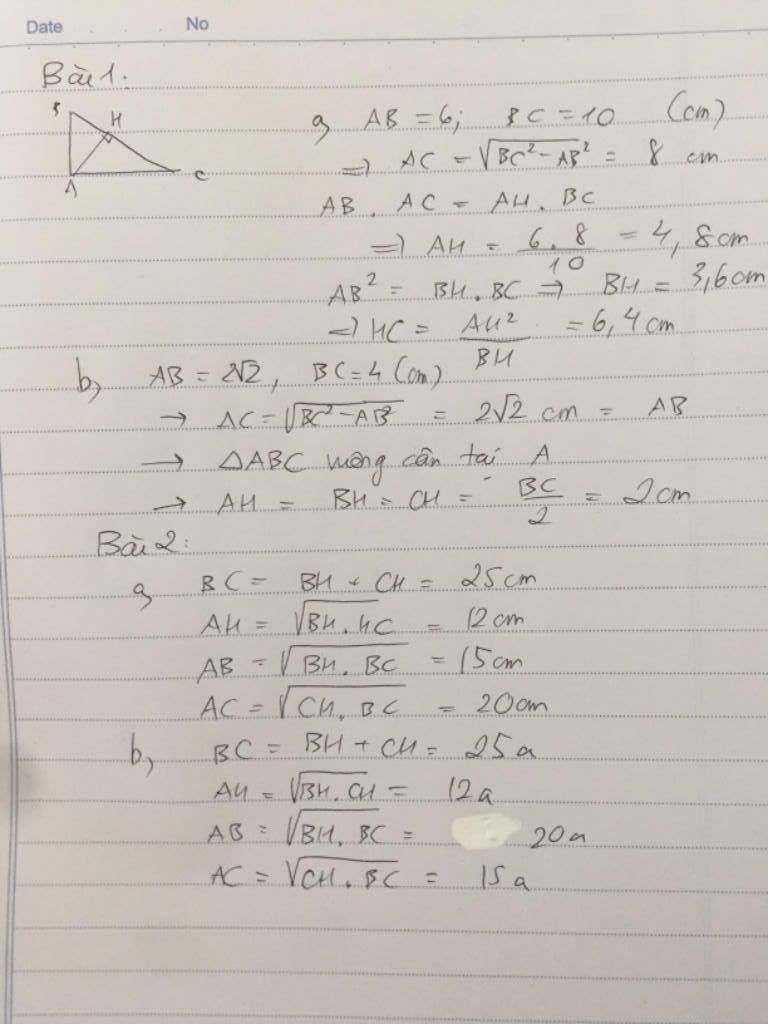 Date No
Bài 1.
B H A C
a, AB = 6; BC = 10 (cm)
=> AC = √(BC² - AB²) = 8 cm
AB . AC = AH . BC
=> AH = (6 . 8)/10 = 4,8cm
AB² = BH . BC => BH = 3,6cm
=> HC = AH²/BH = 6,4cm
b, AB = 2√2, BC = 4 (cm)
→ AC = √(BC² - AB²) = 2√2 cm = AB
→ △ABC vuông cân tại A
→ AH = BH = CH = BC/2 = 2cm
Bài 2:
a, BC = BH + CH = 25cm
AH = √(BH . HC) = 12cm
AB = √(BH . BC) = 15cm
AC = √(CH . BC) = 20cm
b, BC = BH + CH = 25a
AH = √(BH . CH) = 12a
AB = √(BH . BC) = 20a
AC = √(CH . BC) = 15a